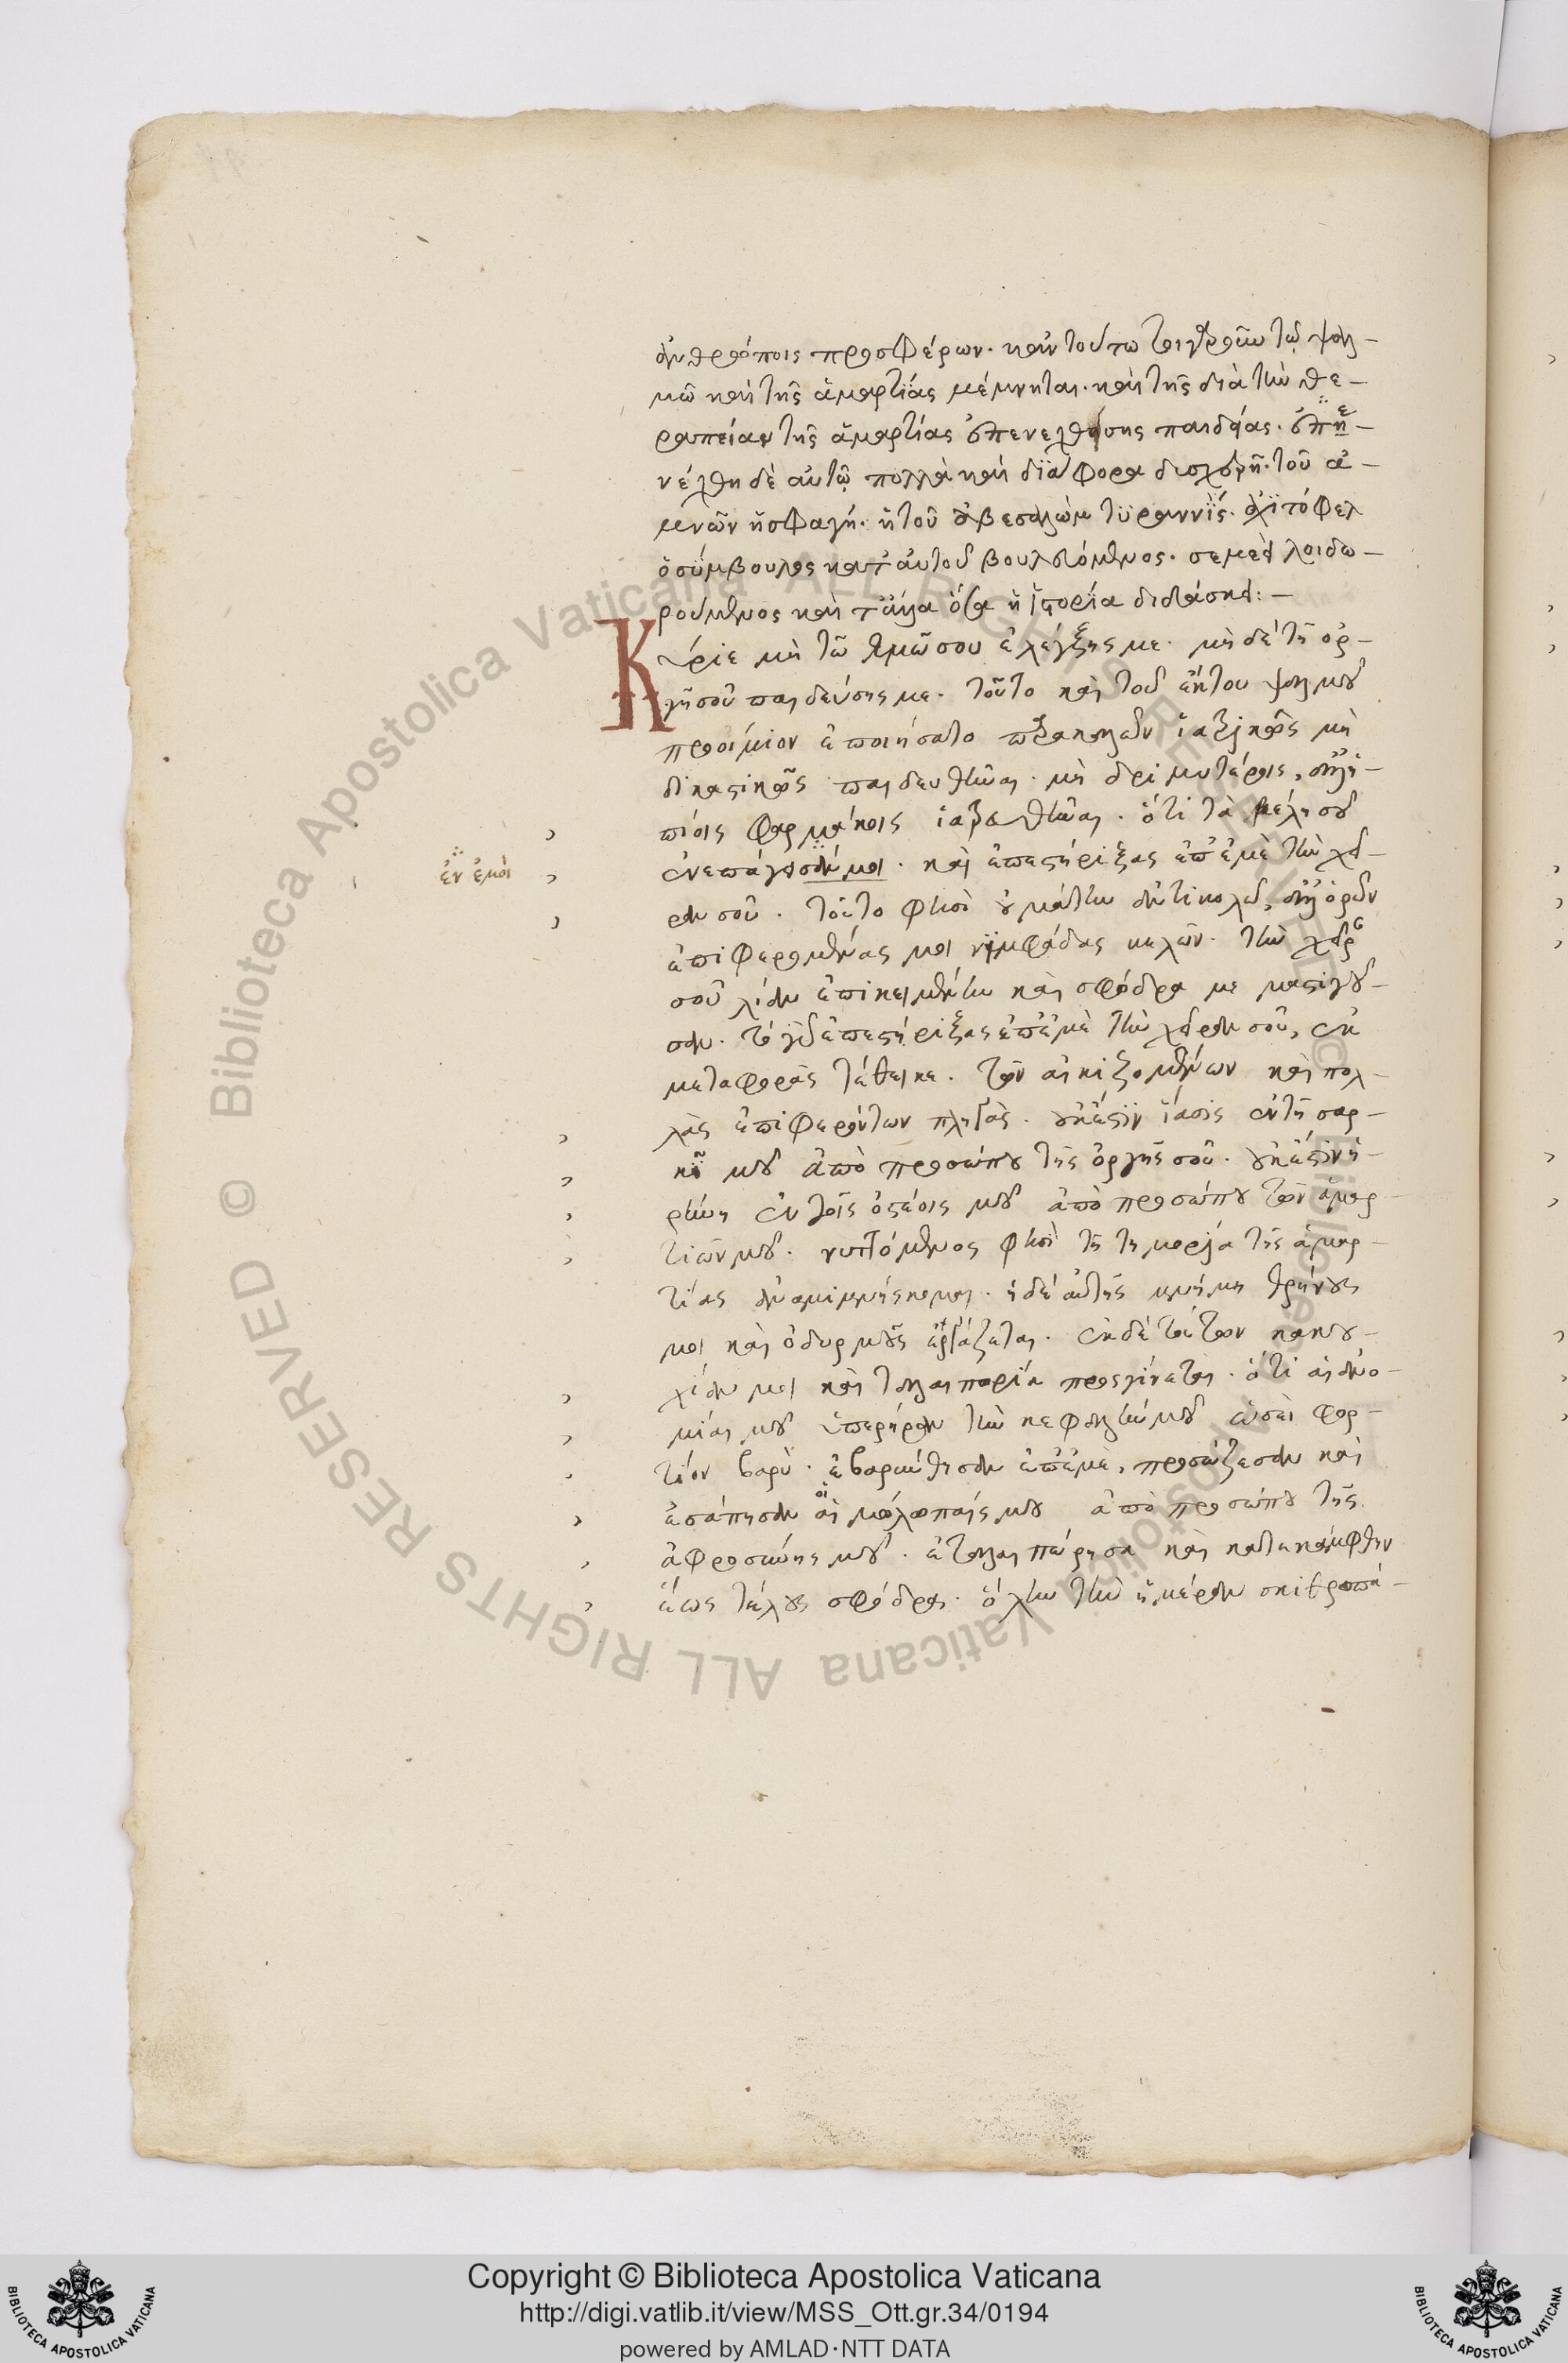 ἀνθρώποις προσφέρων. κἀν τούτω τοιγαροῦν τῷ ψαλ-
μῶ καὶ τῆς ἁμαρτίας μέμνηται. καὶ τῆς διὰ τὴν θε-
ραπείαν τῆς ἁμαρτίας ἐπενεχθείσης παιδείας. ἐπη-
νέχθη δὲ αὐτῷ πολλὰ καὶ διάφορα δυσχερῆ. τοῦ ἀ-
μνῶν ἡ σφαγή. ἡ τοῦ ἀβεσαλὼμ τυραννίς. ἀχιτόφελ
ὁ σύμβουλος κατ' αὐτοῦ βουλευόμενος. σεμεεὶ λοιδω-
ρούμενος καὶ τἄλλα ὅσα ἡ ἱστορία διδάσκει: -
Κύριε μὴ τῶ θυμῶ σου ἐλέγξης με. μὴ δὲ τῆ ὀρ-
γῆ σοῦ παιδεύσης με. τοῦτο καὶ τοῦ ἕκτου ψαλμοῦ
προοίμιον ἐποιήσατο παρακαλῶν ἰατρικῶς μὴ
δικαστικῶς παιδευθῆναι. μὴ δριμυτέροις, ἀλλ' ἠ-
πίοις φαρμάκοις ἰατρευθῆναι. ὅτι τὰ βέλη σου
ἐνεπάγησάν μοι. καὶ ἐπεστήριξας ἐπ' ἐμὲ τὴν χεῖ-
ἐν ἐμοὶ
ρα σοῦ. τοῦτο φησὶ οὐ μάτην ἀντιβολῶ, ἀλλ' ὁρῶν
ἐπιφερομένας μοι νιφάδας κακῶν. τὴν χεῖρα
σοῦ λίαν ἐπικειμένην καὶ σφόδρα με μαστιγοῦ-
σαν. τὸ γὰρ ἐπεστήριξας ἐπ' ἐμὲ τὴν χεῖραν σοῦ, ἐκ
μεταφορᾶς τέθεικε. τῶν αἰκιζομένων καὶ πολ-
λὰς ἐπιφερόντων πληγὰς. οὐκ ἔστιν ἴασις ἐν τῆ σαρ-
κί μου ἀπὸ προσώπου τῆς ὀργῆς σοῦ. οὐκ ἔστιν εἰ-
ρήνη ἐν τοῖς ὀστέοις μου ἀπὸ προσώπου τῶν ἁμαρ-
τιῶν μου. νυττόμενος φησὶ τῆ τιμωρία τῆς ἁμαρ-
τίας ἀναμιμνήσκομαι. ἡ δὲ αὐτῆς μνήμη θρήνους
μοι καὶ ὀδυρμοὺς ἐργάζεται. ἐκ δὲ τούτων κακου-
χίαν μοι καὶ ταλαιπωρία προσγίνεται. ὅτι αἱ ἀνο-
μίαι μου ὑπερῆραν τὴν κεφαλήν μου ὡσεὶ φορ-
τίον βαρὺ. ἐβαρύνθησαν ἐπ' ἐμὲ, προσώζεσαν καὶ
ἐσάπησαν οἱ μώλωπές μου ἀπὸ προσώπου τῆς
ἀφροσύνης μου. ἐταλαιπώρησα καὶ κατεκάμφθην
ἕως τέλους σφόδρα. ὅλην τὴν ἡμέραν σκυθρωπά-
Copyright © Biblioteca Apostolica Vaticana
http://digi.vatlib.it/view/MSS_Ott.gr.34/0194
powered by AMLAD·NTT DATA